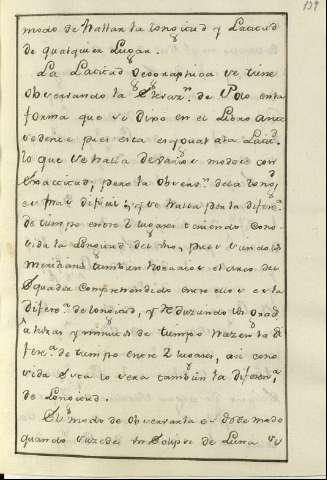 139
modo de hallar la longitud y Latitud
de qualquier Lugar.
La Latitud Geographica se tiene
observando la Elevazn. de Polo en la
forma que se dixo en el Libro ante
cedente pues esta es igual a la Latitd.
lo que se halla de varios modos con
Exactitud; pero la observn. de la Longd.
es mas dificil; y se halla por la difera.
de tiempo entre 2 lugares teniendo cono-
vida la Longitud del otro, pues siendo los
meridianos tambien horarios el arco del
Equador Comprehendido entre ellos es la
difera. de longitud, y Reduzendo los Grads.
a horas y minutos de tiempo hazen la di
fera. de tiempo entre 2 lugares, asi cono
vida Esta lo sera tambien la diferena.
de Longitud.
El modo de observarla es de este modo
quando suzede un Eclipse de Luna se